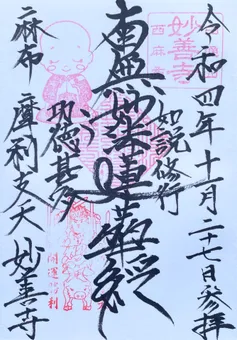 令和四年十一月二十七日参拝
妙善寺
西麻布
如説修行
南無妙法蓮華経
功徳甚多
麻布 摩利支天 妙善寺
開運
勝利